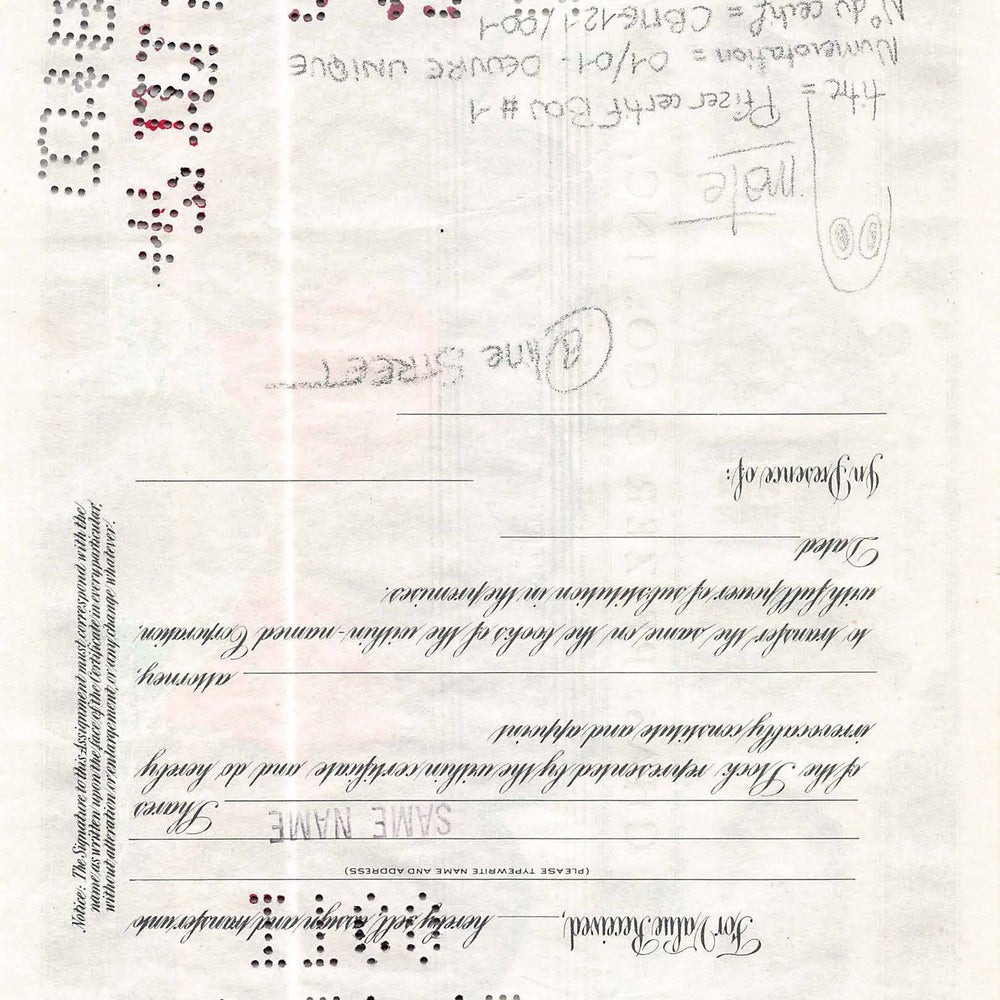 For Value Received, hereby sell, assign and transfer unto
(PLEASE TYPEWRITE NAME AND ADDRESS)
SAME NAME
Shares
of the Stock represented by the within certificate and do hereby
irrevocably constitute and appoint
attorney,
to transfer the same on the books of the within-named Corporation,
with full power of substitution in the premises.
Dated
In Presence of:
STREET
titre = Pfizer certif #1
Numerotation = 01/01 - OEUVRE UNIQUE
N° du certif =
Notice: The Signature to this Assignment must correspond with the
name as written upon the face of the Certificate in every particular,
without alteration or enlargement, or any change whatever.